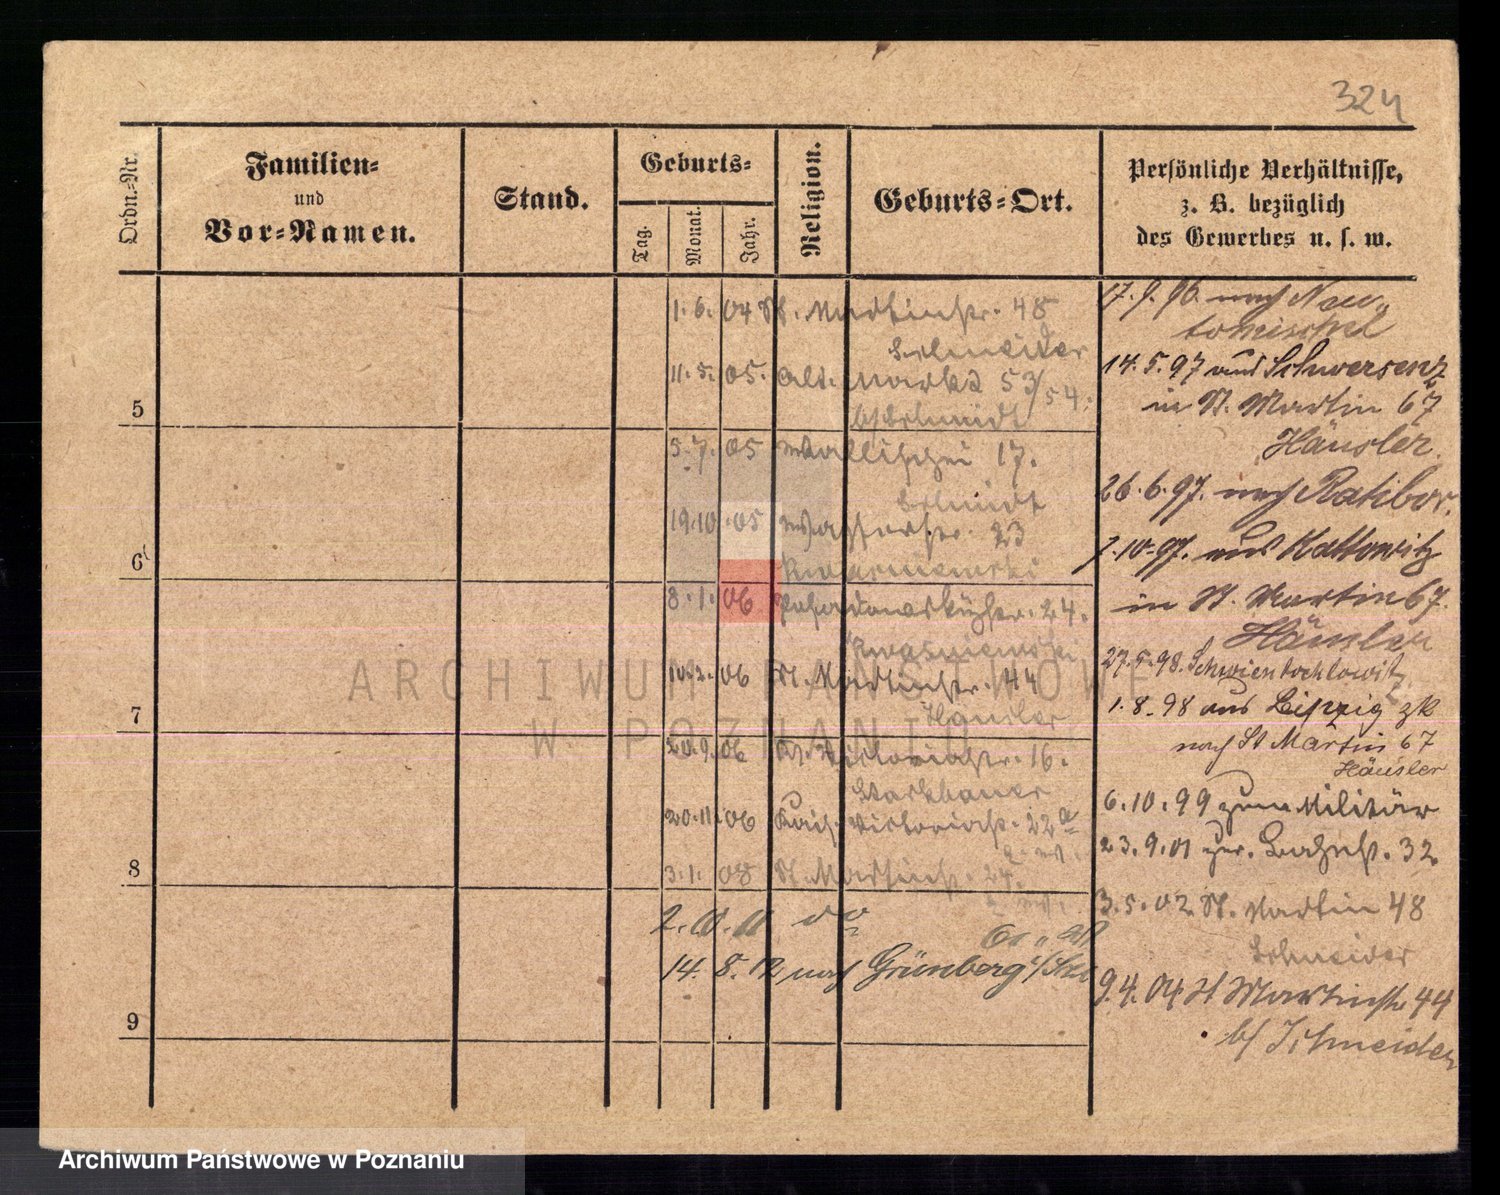 324
Ordn.-Nr.
Familien-
und
Vor-Namen.
Stand.
Geburts-
Tag.
Monat.
Jahr.
Religion.
Geburts-Ort.
Persönliche Verhältnisse,
z. B. bezüglich
des Gewerbes u. s. w.
5
6
7
8
9
1. 6. 04 St. Martinstr. 48
Schneider
11. 5. 05. Alt. Markt 53/54.
b/ Schmidt
5. 7. 05 Wallischei 17.
Schmidt
19.10.05 Wasserstr. 23
Kwasniewski
8. 1. 06 24.
Kwasniewski
10.2. 06 St. Martinstr. 44
Häusler
20.9.06 Victoriastr. 16.
20.11.06 Kais. Victoriastr. 22a
3.1. 08 St. Martinstr. 24.
2.10.11 do
14. 8. 12 nach Grünberg i/Schl
17. 9. 96. nach Neu-
tomischel
14. 5. 97 aus Schwersenz
in St. Martin 67
Häusler.
26. 6. 97. nach Ratibor.
7.10.97. aus Kattowitz
in St. Martin 67.
Häusler
27.5.98. Schwientochlowitz
1. 8. 98 aus Leipzig zk
nach St Martin 67
Häusler
6. 10. 99 zum Militär
23. 9. 01 zur. 32
3. 5. 02 St. Martin 48
Schneider
9.4. 04 St Martinstr 44
b/ Schneider
ARCHIWUM PAŃSTWOWE
W POZNANIU
Archiwum Państwowe w Poznaniu